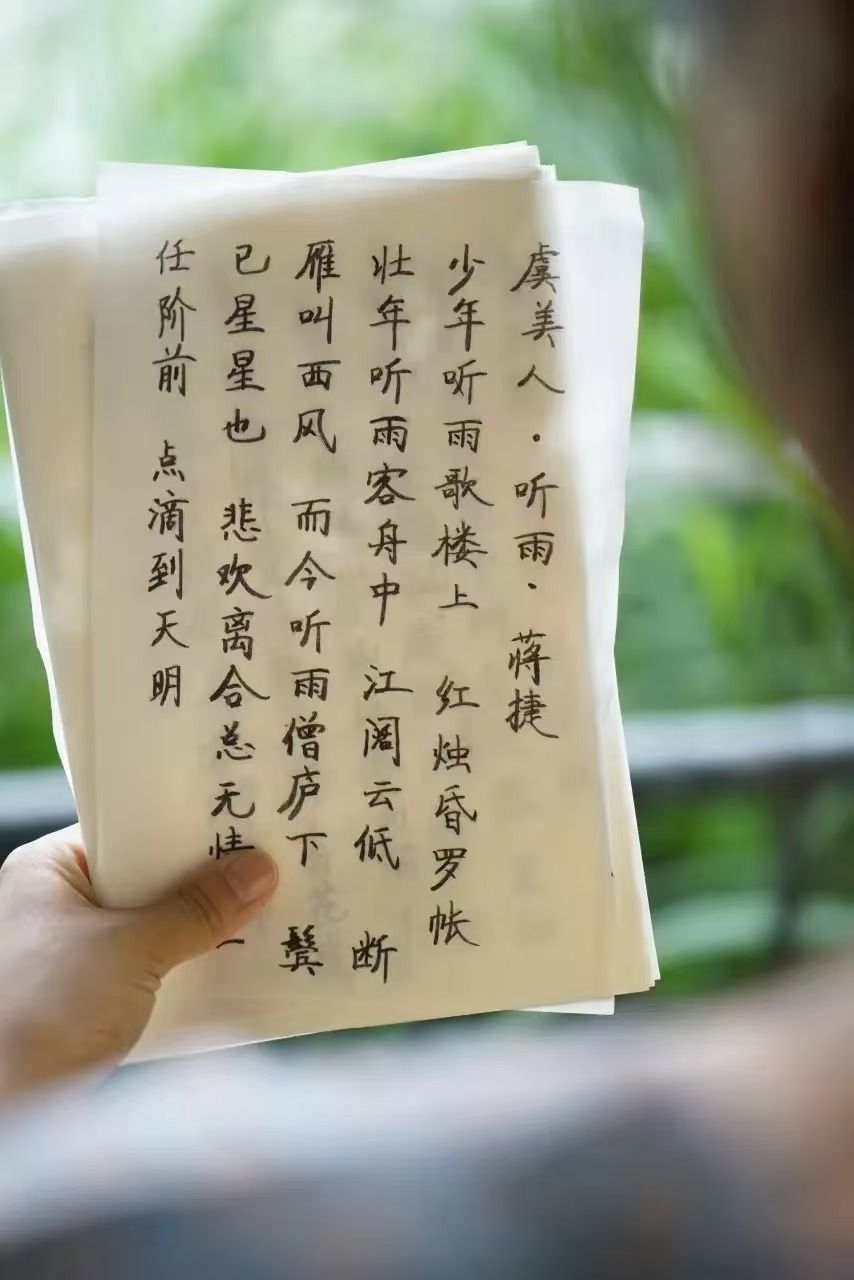 虞美人·听雨·蒋捷
少年听雨歌楼上 红烛昏罗帐
壮年听雨客舟中 江阔云低 断
雁叫西风 而今听雨僧庐下 鬓
已星星也 悲欢离合总无情 一
任阶前 点滴到天明